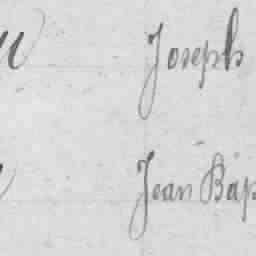 Joseph
Jean Bap